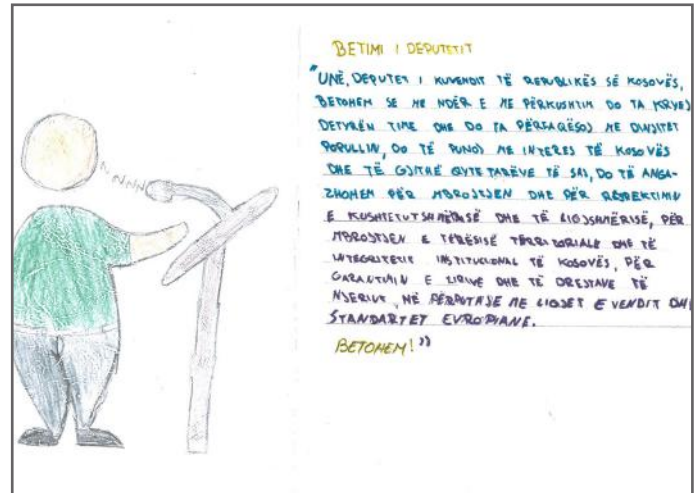 BETIMI I DEPUTETIT
"UNË, DEPUTET I KUVENDIT TË REPUBLIKËS SË KOSOVËS,
BETOHEM SE ME NDER E ME PËRKUSHTIM DO TA KRYEJ
DETYRËN TIME DHE DO TA PËRFAQËSOJ ME DINJITET
POPULLIN, DO TË PUNOJ ME INTERES TË KOSOVËS
DHE TË GJITHË QYTETARËVE TË SAJ, DO TË ANGA-
ZHOHEM PËR MBROJTJEN DHE PËR RESPEKTIMIN
E KUSHTETUTSHMËRISË DHE TË LIGJSHMËRISË, PËR
MBROJTJEN E TËRËSISË TËRRITORIALE DHE TË
INTEGRITETIT INSTITUCIONAL TË KOSOVËS, PËR
GARANTIMIN E LIRIVE DHE TË DREJTAVE TË
NJERIUT, NË PËRPUTHJE ME LIGJET E VENDIT DHE
STANDARTET EVROPIANE.
BETOHEM!"